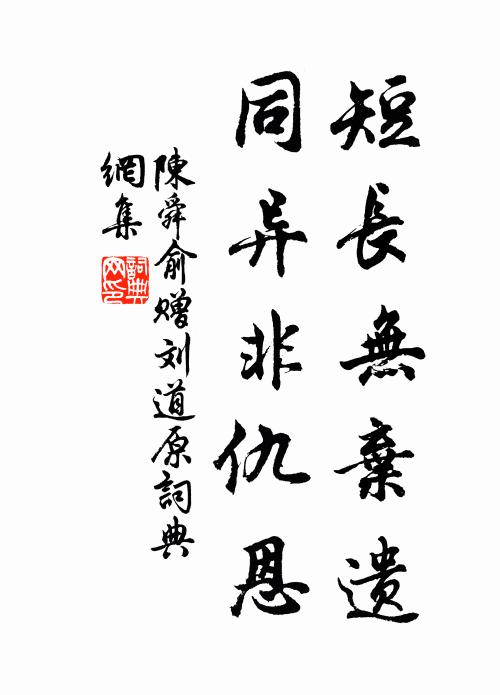 短長無棄遗
同异非仇恩
陳舜俞赠刘道原詞典
網集
詞典
网印